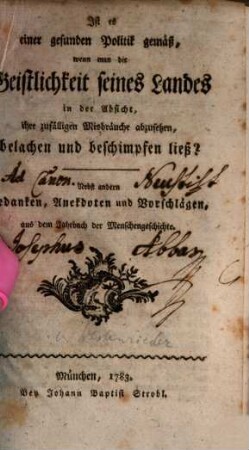 Ist es
einer gesunden Politik gemäß,
wenn man die
Geistlichkeit seines Landes
in der Absicht,
ihre zufälligen Misbräuche abzusehen,
belachen und beschimpfen ließ?
Ad Canon. Neustift
Nebst andern
edanken, Anekdoten und Vorschlägen,
aus dem Jahrbuch der Menschengeschichte.
Josephus Abbas
München, 1783.
Bey Johann Baptist Strobl.